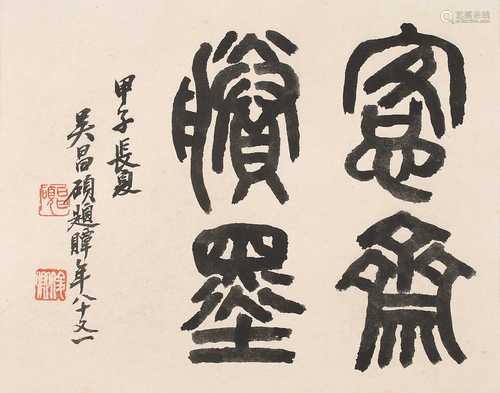 愙齋
賸墨
甲子長夏
吳昌碩題時年八十又一